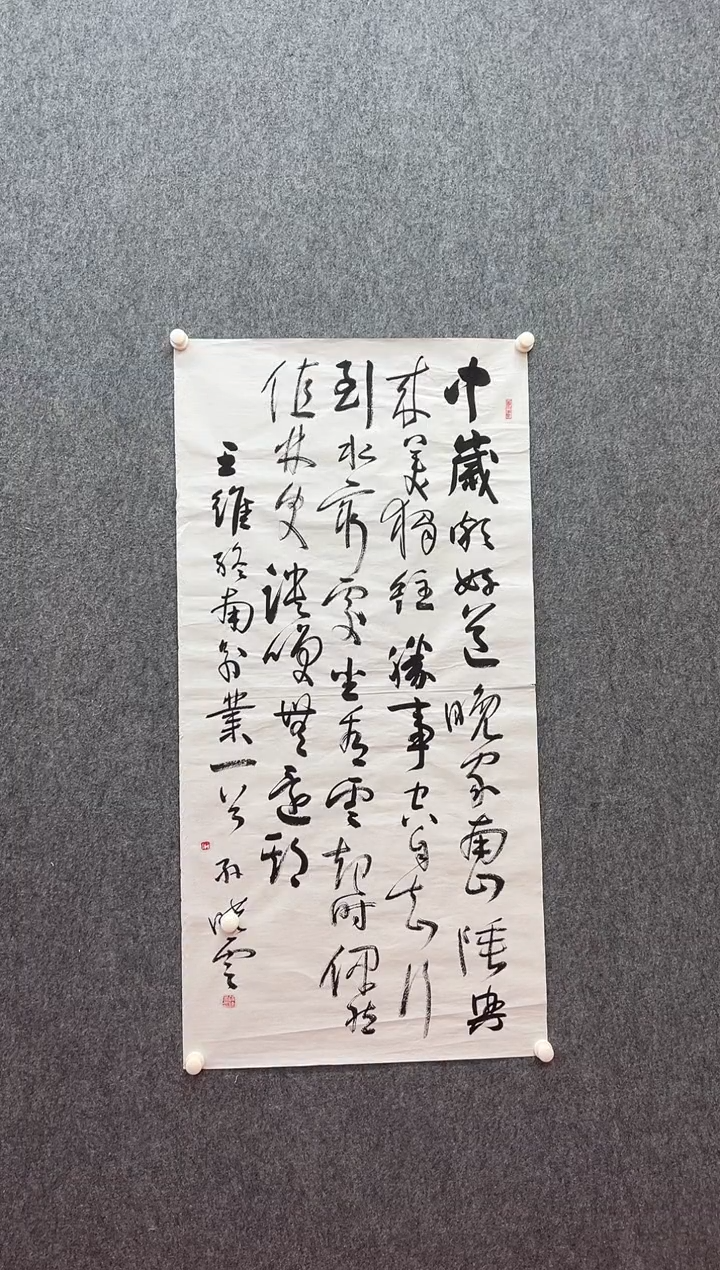 中歲頗好道晚家南山陲興
来美獨往勝事空自知行
到水窮處坐看雲起時偶然
值林叟談咲無還期
王維終南別業一首 孫曉雲